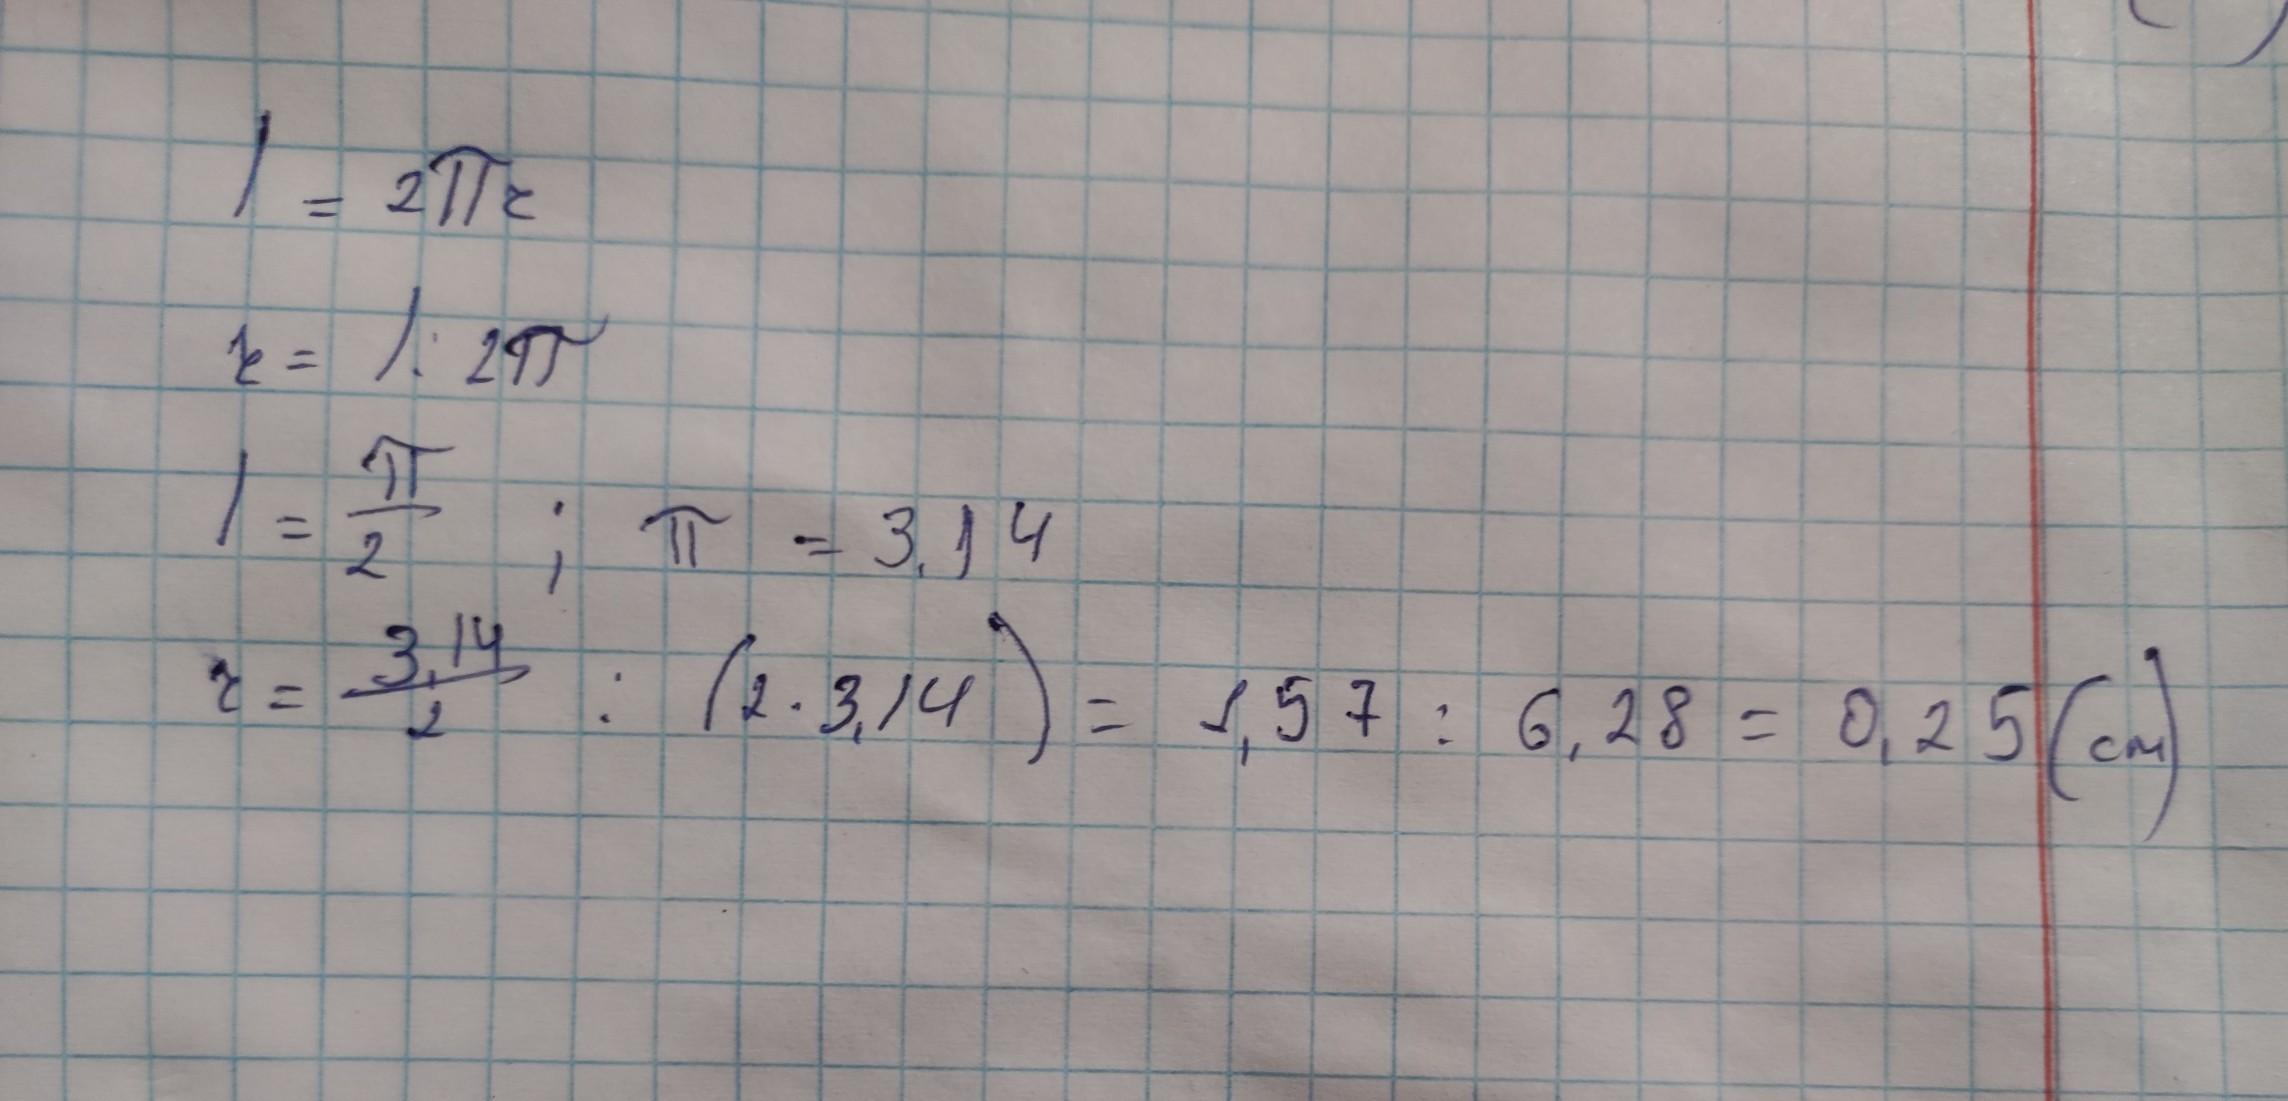 l = 2πr
r = l : 2π
l = π/2 ; π = 3,14
r = 3,14/2 : (2 · 3,14) = 1,57 : 6,28 = 0,25 (см)